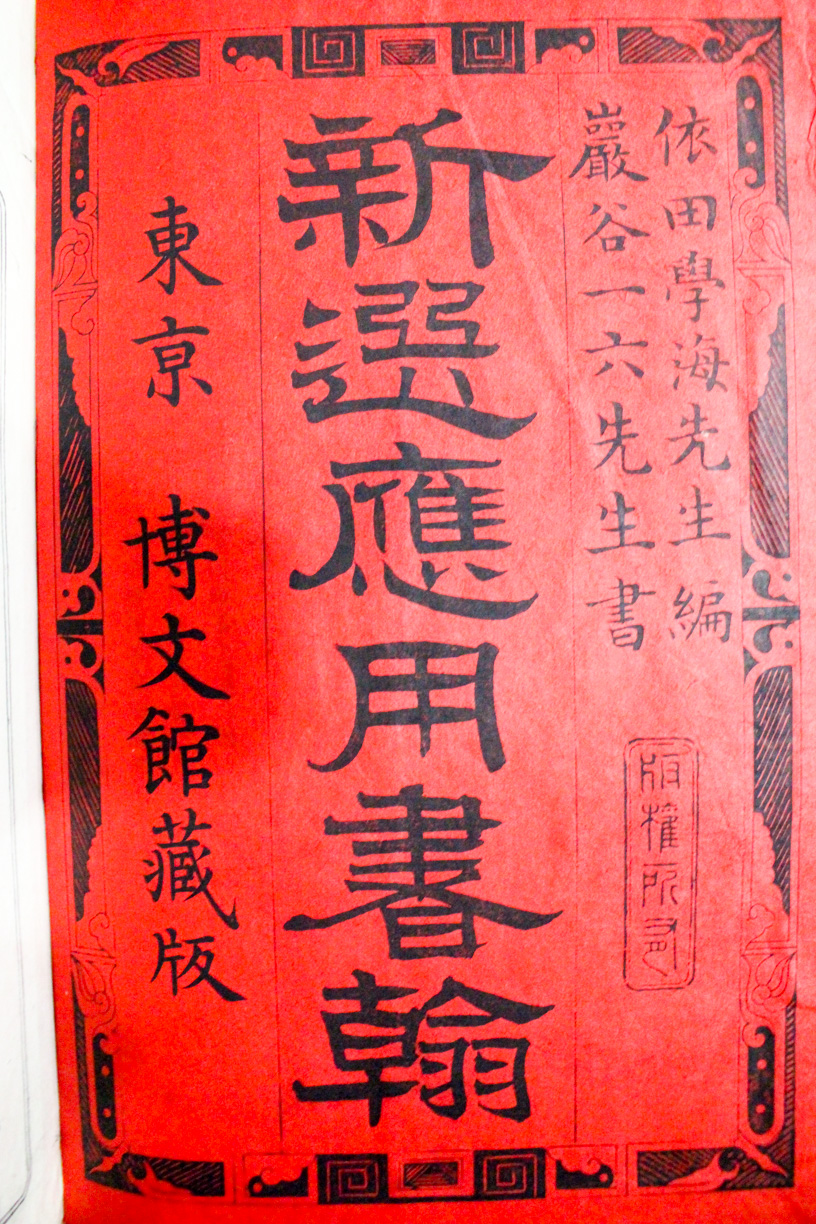 依田學海先生編
巖谷一六先生書
版權所有
新選應用書翰
東京 博文館藏版